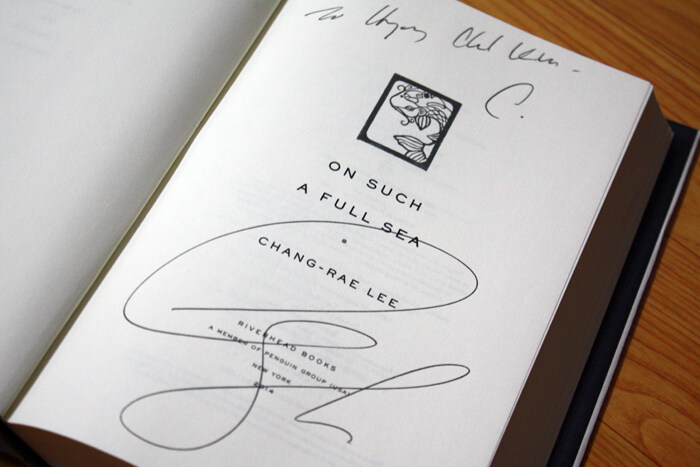 To
C.
ON SUCH
A FULL SEA
CHANG-RAE LEE
RIVERHEAD BOOKS
A MEMBER OF PENGUIN GROUP (USA)
NEW YORK
2014